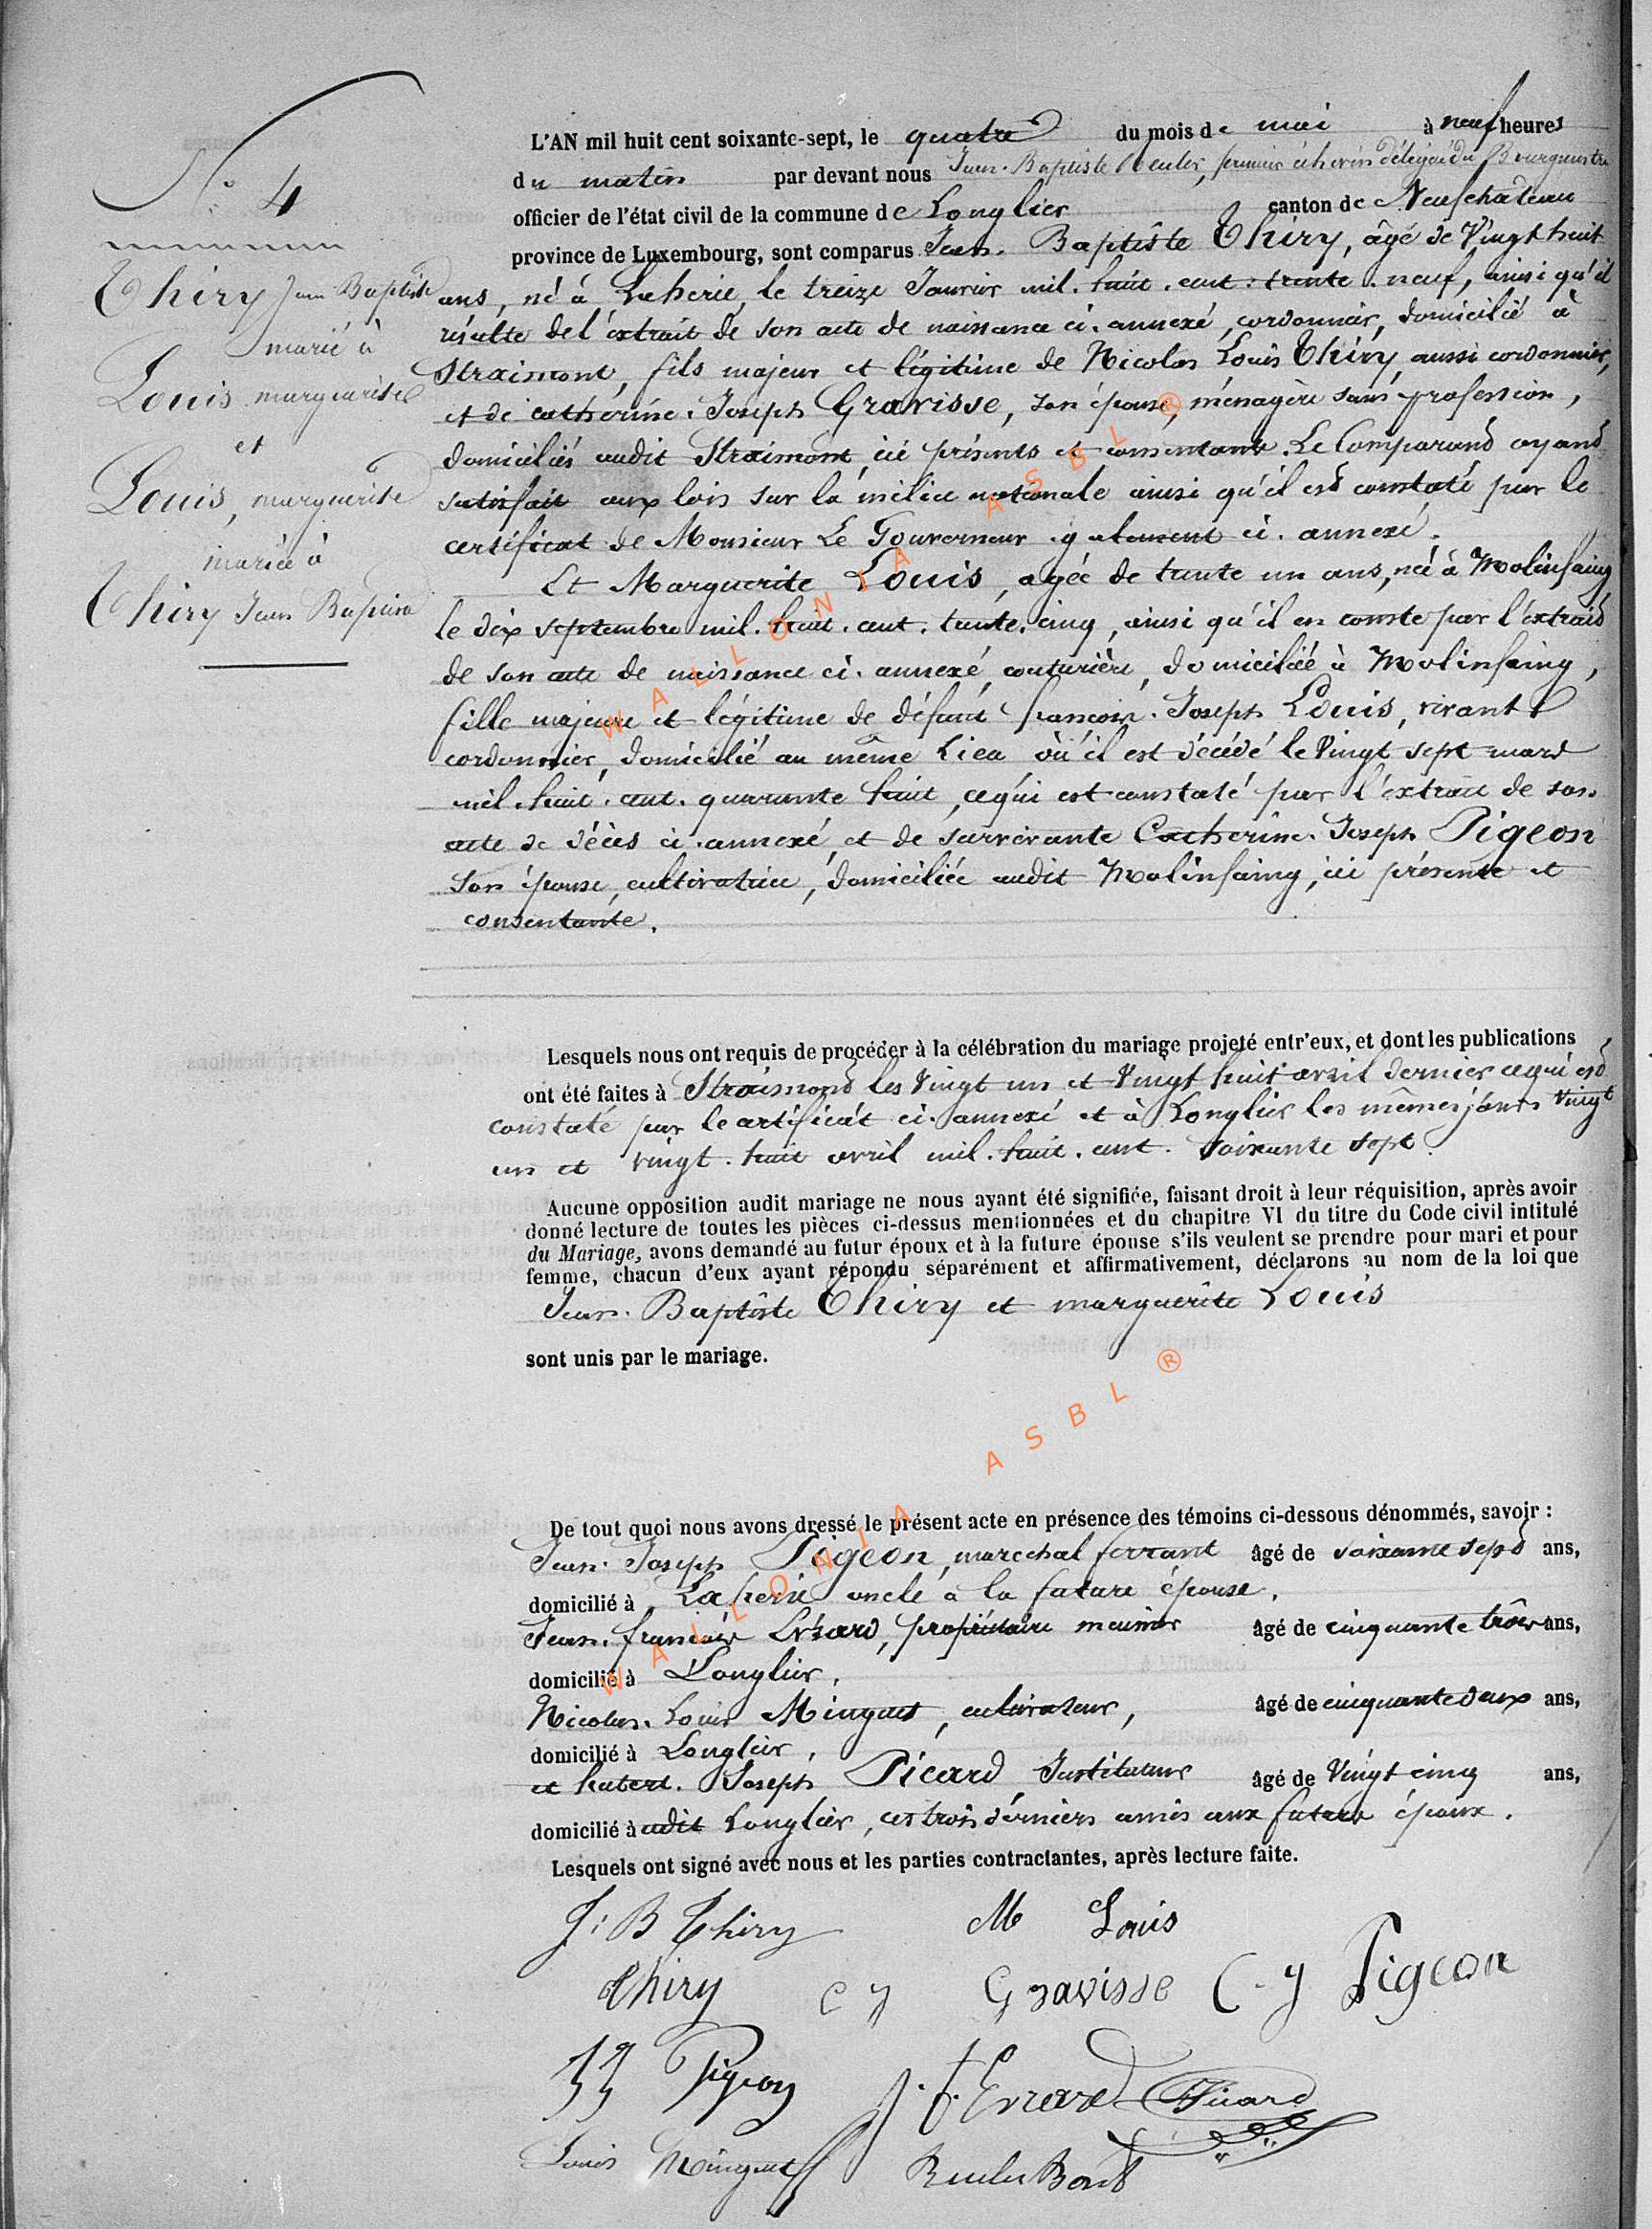 N° 4
Thiry Jean Baptiste
marié à
Louis marguerite
et
Louis, marguerite
mariée à
Thiry Jean Baptiste
L'AN mil huit cent soixante-sept, le quatre du mois de mai à neuf heures
du matin par devant nous Jean-Baptiste Reuler, premier échevin délégué du Bourgmestre
officier de l'état civil de la commune de Longlier canton de Neufchateau
province de Luxembourg, sont comparus Jean-Baptiste Thiry, âgé de Vingt huit
ans, né à Laherie, le treize Janvier mil-huit-cent-trente-neuf, ainsi qu'il
résulte de l'extrait de son acte de naissance ci-annexé, cordonnier, domicilié à
Straimont, fils majeur et légitime de Nicolas Louis Thiry, aussi cordonnier,
et de catherine-Joseph Gravisse, son épouse, ménagère sans profession,
domiciliés audit Straimont, ici présents et consentants. Le Comparand ayand
satisfait aux lois sur la milice nationale ainsi qu'il esd constaté par le
certificat de Monsieur Le Gouverneur également ci-annexé.
Et Marguerite Louis, agée de trente un ans, née à Molinfaing
le dix septembre mil-huit-cent-trente-cinq, ainsi qu'il en conste par l'extraid
de son acte de naissance ci-annexé, couturière, domiciliée à Molinfaing,
fille majeure et légitime de défunt françois-Joseph Louis, vivant
cordonnier, domicilié au même Lieu où il est décédé le Vingt sept mars
mil-huit-cent-quarante huit, ce qui est constaté par l'extrait de son
acte de décès ci-annexé, et de survivante Catherine-Joseph Pigeon
son épouse, cultivatrice, domiciliée audit Molinfaing, ici présente et
consentante.
Lesquels nous ont requis de procéder à la célébration du mariage projeté entr'eux, et dont les publications
ont été faites à Straimond les Vingt un et Vingt huit avril dernier ce qui esd
constaté par le certificat ci-annexé et à Longlier les mêmes jours Vingt
un et vingt-huit avril mil-huit-cent-soixante sept.
Aucune opposition audit mariage ne nous ayant été signifiée, faisant droit à leur réquisition, après avoir
donné lecture de toutes les pièces ci-dessus mentionnées et du chapitre VI du titre du Code civil intitulé
du Mariage, avons demandé au futur époux et à la future épouse s'ils veulent se prendre pour mari et pour
femme, chacun d'eux ayant répondu séparément et affirmativement, déclarons au nom de la loi que
Jean-Baptiste Thiry et marguerite Louis
sont unis par le mariage.
De tout quoi nous avons dressé le présent acte en présence des témoins ci-dessous dénommés, savoir :
Jean-Joseph Pigeon, marechal ferrant âgé de soixante sepd ans,
domicilié à Laherie oncle à la future épouse,
Jean-françois Evrard, propriétaire meunier âgé de cinquante trois ans,
domicilié à Longlier,
Nicolas-Louis Minguet, cultivateur, âgé de cinquante deux ans,
domicilié à Longlier,
et hubert-Joseph Picard Instituteur âgé de Vingt cinq ans,
domicilié à audit Longlier, ces trois derniers amis aux futurs époux.
Lesquels ont signé avec nous et les parties contractantes, après lecture faite.
J: B Thiry M Louis
Thiry C J Gravisse C-J Pigeon
JJ Pigeon J. f. Evrard Picard
Louis Minguet
WALLONIA ASBL ®
WALLONIA ASBL ®